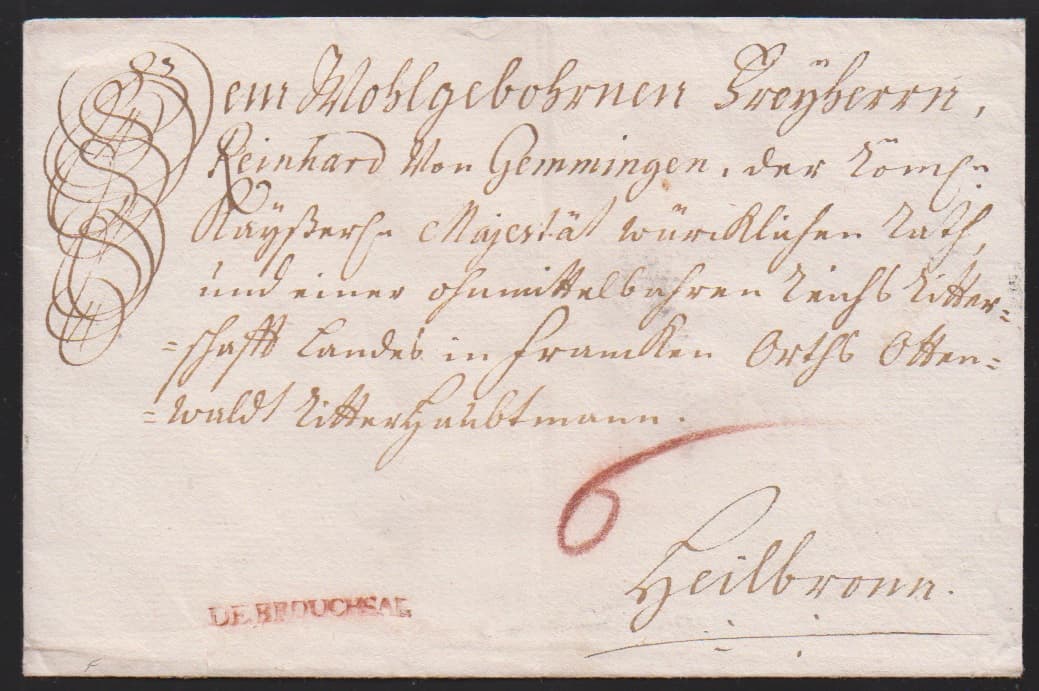 Dem Wohlgebohrnen Freyherrn,
Reinhard Von Gemmingen, der Röml:n
Kayßerl:n Majestät würcklichen Rath,
und einer ohnmittelbahren Reichs Ritter=
=schafft Landes in Francken Orths Otten=
=waldt Ritter Haubtmann.
6
Heilbronn.
DE BROUCHSAL